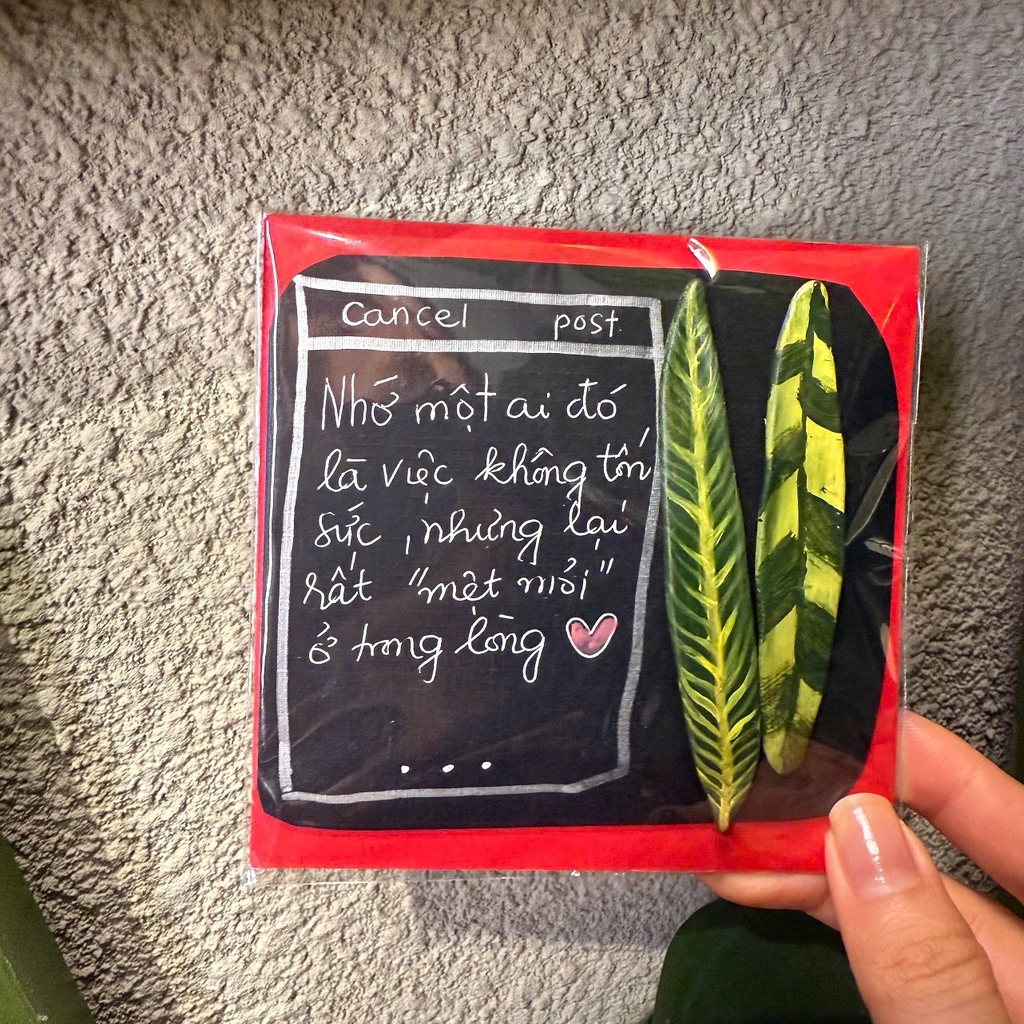 Cancel post
Nhớ một ai đó
là việc không tốn
sức, nhưng lại
rất "mệt mỏi"
ở trong lòng
...